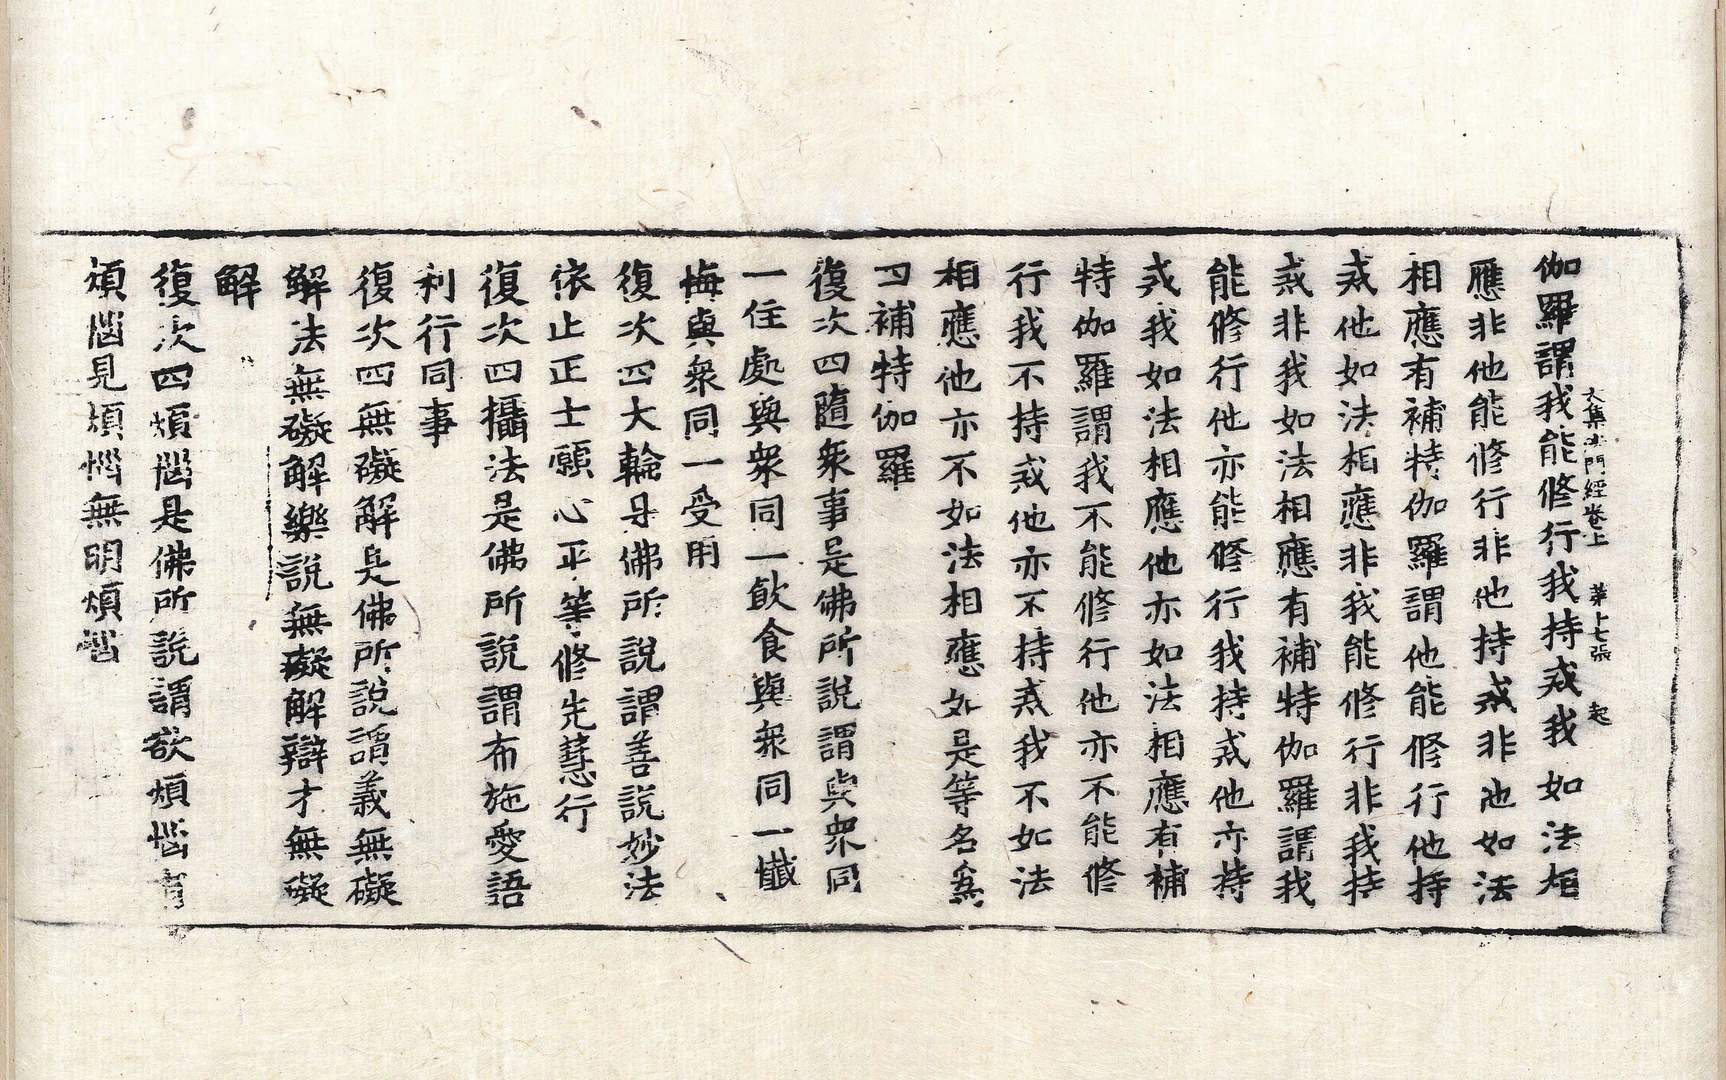 大集法門經卷上 第十七張 起
伽羅謂我能修行我持戒我如法相
應非他能修行非他持戒非他如法
相應有補特伽羅謂他能修行他持
戒他如法相應非我能修行非我持
戒非我如法相應有補特伽羅謂我
能修行他亦能修行我持戒他亦持
戒我如法相應他亦如法相應有補
特伽羅謂我不能修行他亦不能修
行我不持戒他亦不持戒我不如法
相應他亦不如法相應如是等名為
四補特伽羅
復次四隨衆事是佛所說謂與衆同
一住處與衆同一飲食與衆同一懺
悔與衆同一受用
復次四大輪是佛所說謂善說妙法
依止正士願心平等修先慧行
復次四攝法是佛所說謂布施愛語
利行同事
復次四無礙解是佛所說謂義無礙
解法無礙解樂說無礙解辯才無礙
解
復次四煩惱是佛所說謂欲煩惱有
煩惱見煩惱無明煩惱